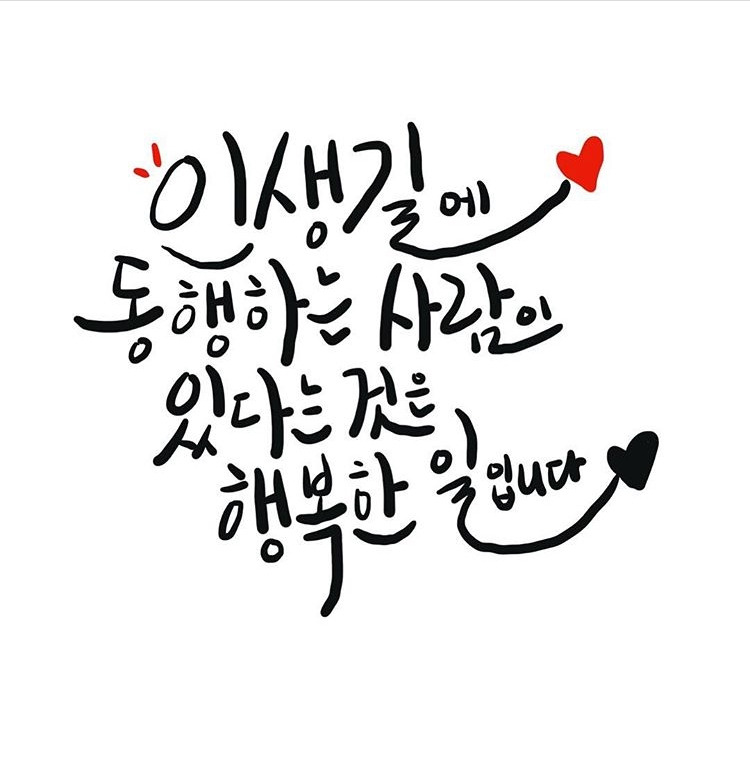 인생길에
동행하는 사람이
있다는 것은
행복한 일입니다